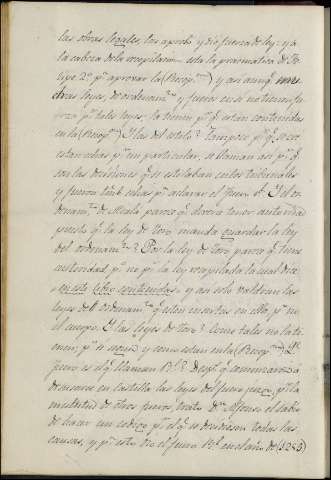 las obras legales, las aprobó y dio fuerza de ley: y a
la cabeza de la recopilacion esta la pracmatica de Fe-
lipe 2º pª aprovar la (Recopon) y asi aunqe
otras leyes, de ordenamto y fueros en si no tienen fu-
erza pr tales leyes, la tienen pr qe estan contenidas
en la (Recopn) Y las del estilo? Tampoco pr qe
estan echas pr un particular, se llaman asi pr qe
son las decisiones qe se estilaban en los tribunales
y fueron echas pª aclarar el fuero rl. Y el or-
denamto de Alcala parece qe devera tener autoridad
puesto qe la ley de Toro manda guardar la ley
del ordenamto? Por la ley de Toro parece qe tiene
autoridad pº no pr la ley recopilada la cual dice
en este libro contenidas y asi solo valdran las
leyes del ordenamto qe esten insertas en ella pº no
el cuerpo. Y las leyes de Toro? Como tales no la ti-
enen, pº si como estan en la (Recopon) Qe
fuero es el qe llaman Rl? Despˢ qe comenzaron á
desusarse en Castilla las leyes del fuero juzgo, pr la
multitud de otros fueros, trató Dn Alfonso el sabio
de hacer un codigo pr el qe se decidiesen todas las
causas, y pr esto dio el fuero Rl en el año de (1255)